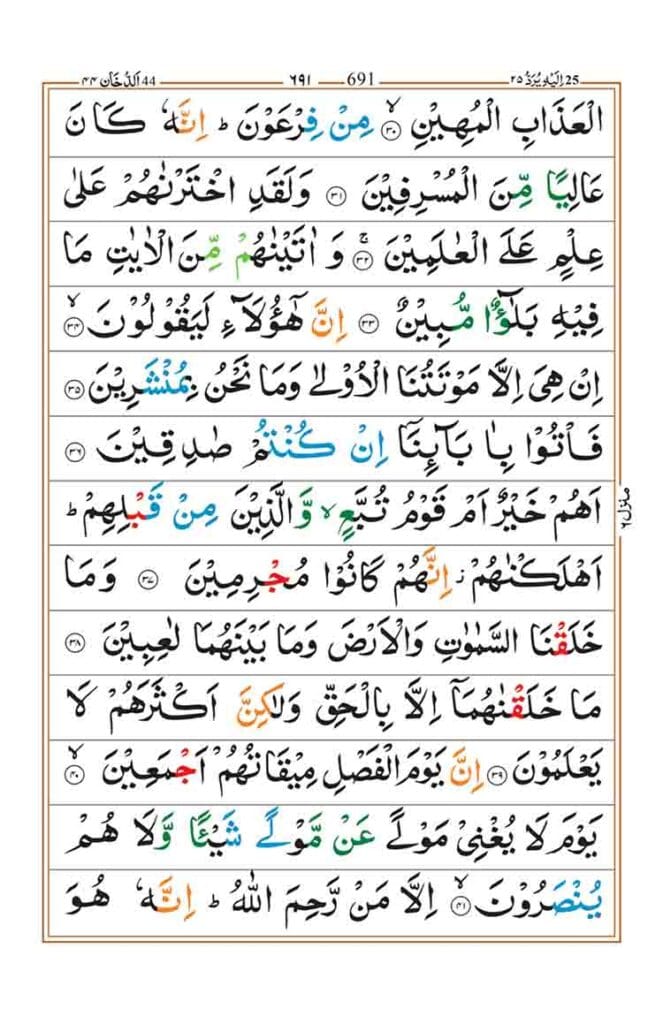 اَلدُّخَان ٤٤ 44 ٦٩١ 691 اِلَيْهِ يُرَدُّ ٢٥ 25
الْعَذَابِ الْمُهِيْنِ ۙ‏﴿۳۰﴾ مِنْ فِرْعَوْنَ ؕ اِنَّهٗ كَانَ
عَالِيًا مِّنَ الْمُسْرِفِيْنَ ﴿۳۱﴾ وَلَقَدِ اخْتَرْنٰهُمْ عَلٰى
عِلْمٍ عَلَى الْعٰلَمِيْنَ ۚ‏﴿۳۲﴾ وَ اٰتَيْنٰهُمْ مِّنَ الْاٰيٰتِ مَا
فِيْهِ بَلٰٓؤٌا مُّبِيْنٌ ﴿۳۳﴾ اِنَّ هٰٓؤُلَآءِ لَيَقُوْلُوْنَ ۙ‏﴿۳۴﴾
اِنْ هِىَ اِلَّا مَوْتَتُنَا الْاُوْلٰى وَمَا نَحْنُ بِمُنْشَرِيْنَ ﴿۳۵﴾
فَاْتُوْا بِاٰبَآئِنَاۤ اِنْ كُنْتُمْ صٰدِقِيْنَ ﴿۳۶﴾
اَهُمْ خَيْرٌ اَمْ قَوْمُ تُبَّعٍ ۙ وَّالَّذِيْنَ مِنْ قَبْلِهِمْ ؕ
اَهْلَكْنٰهُمْ ز اِنَّهُمْ كَانُوْا مُجْرِمِيْنَ ﴿۳۷﴾ وَمَا
خَلَقْنَا السَّمٰوٰتِ وَالْاَرْضَ وَمَا بَيْنَهُمَا لٰعِبِيْنَ ﴿۳۸﴾
مَا خَلَقْنٰهُمَاۤ اِلَّا بِالْحَقِّ وَلٰكِنَّ اَكْثَرَهُمْ لَا
يَعْلَمُوْنَ ﴿۳۹﴾ اِنَّ يَوْمَ الْفَصْلِ مِيْقَاتُهُمْ اَجْمَعِيْنَ ۙ‏﴿۴۰﴾
يَوْمَ لَا يُغْنِىْ مَوْلًى عَنْ مَّوْلًى شَيْئًا وَّلَا هُمْ
يُنْصَرُوْنَ ۙ‏﴿۴۱﴾ اِلَّا مَنْ رَّحِمَ اللّٰهُ ؕ اِنَّهٗ هُوَ
منزل ٦